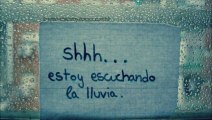 shhh...
estoy escuchando
la lluvia.